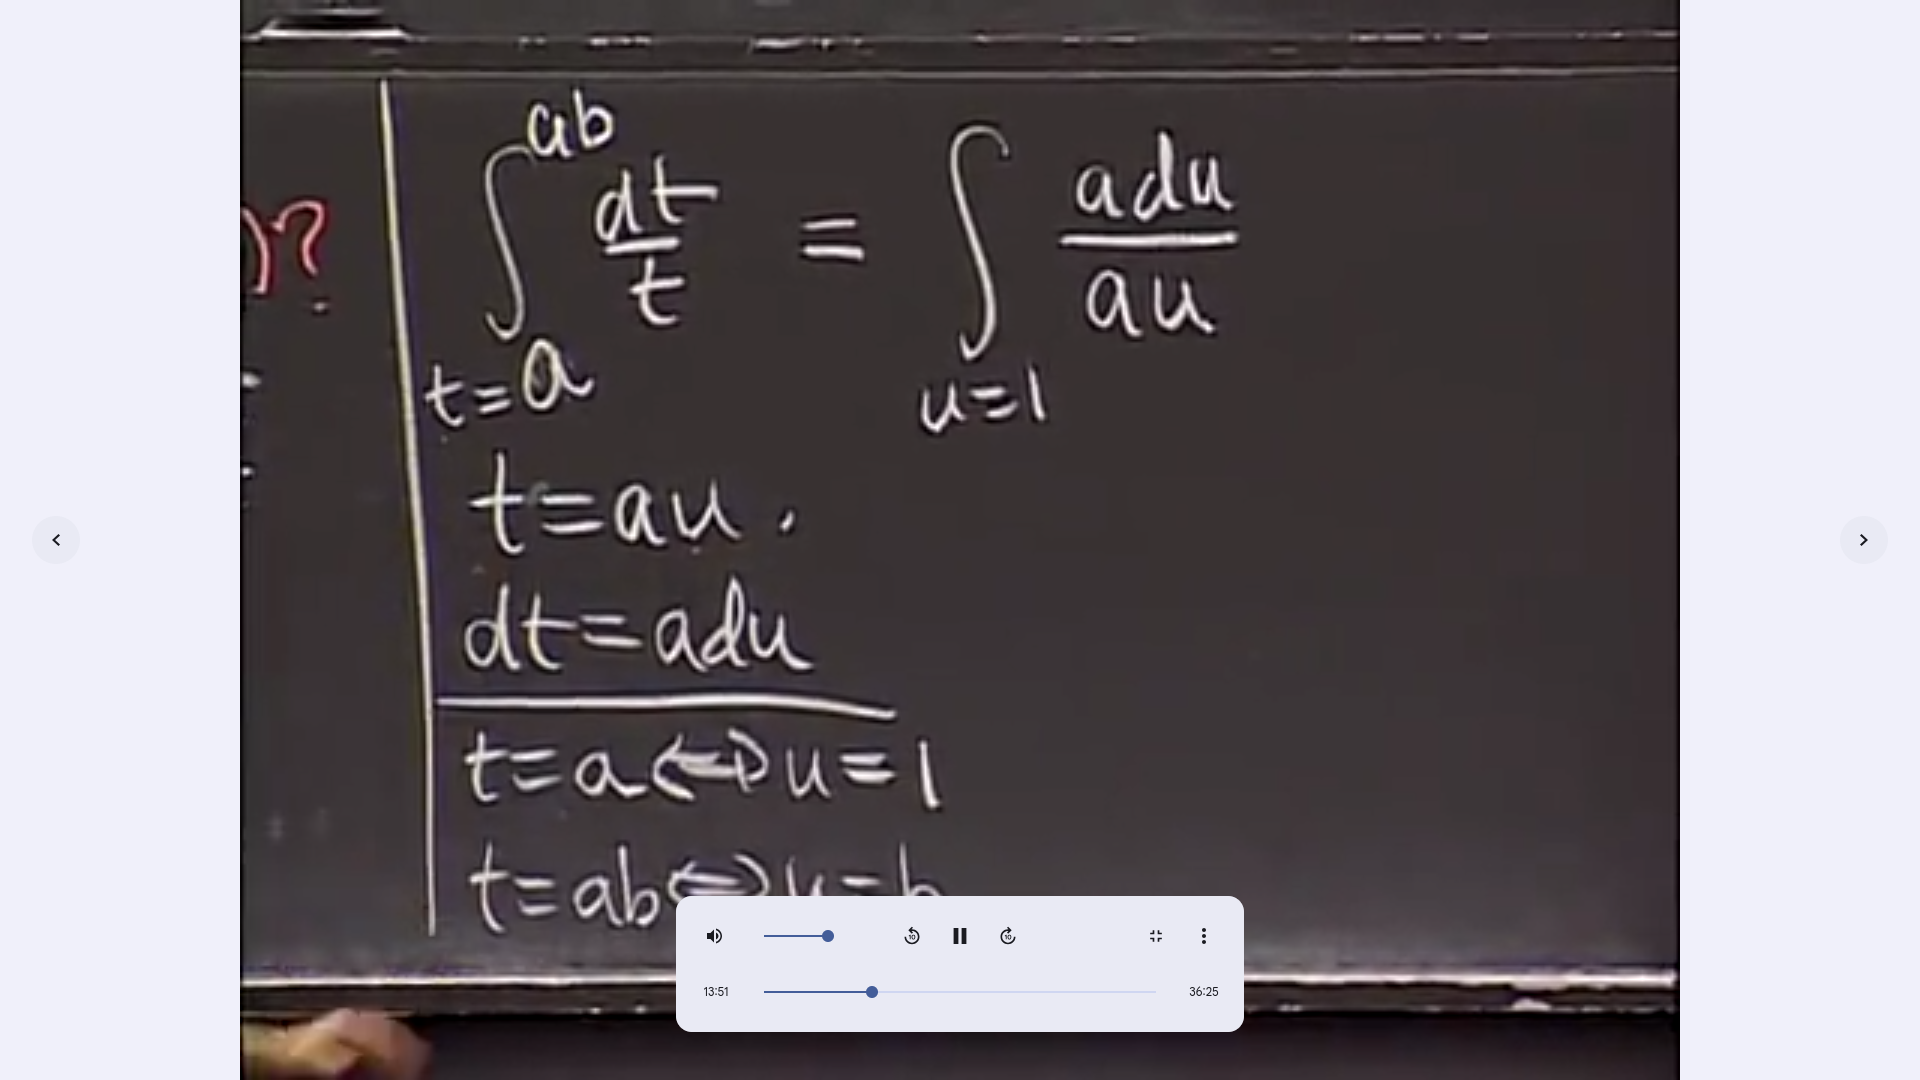 )?
∫_{t=a}^{ab} dt/t = ∫_{u=1} adu/au
t=au.
dt=adu
t=a⟺u=1
t=ab⟺u=b
10 10
13:51 36:25